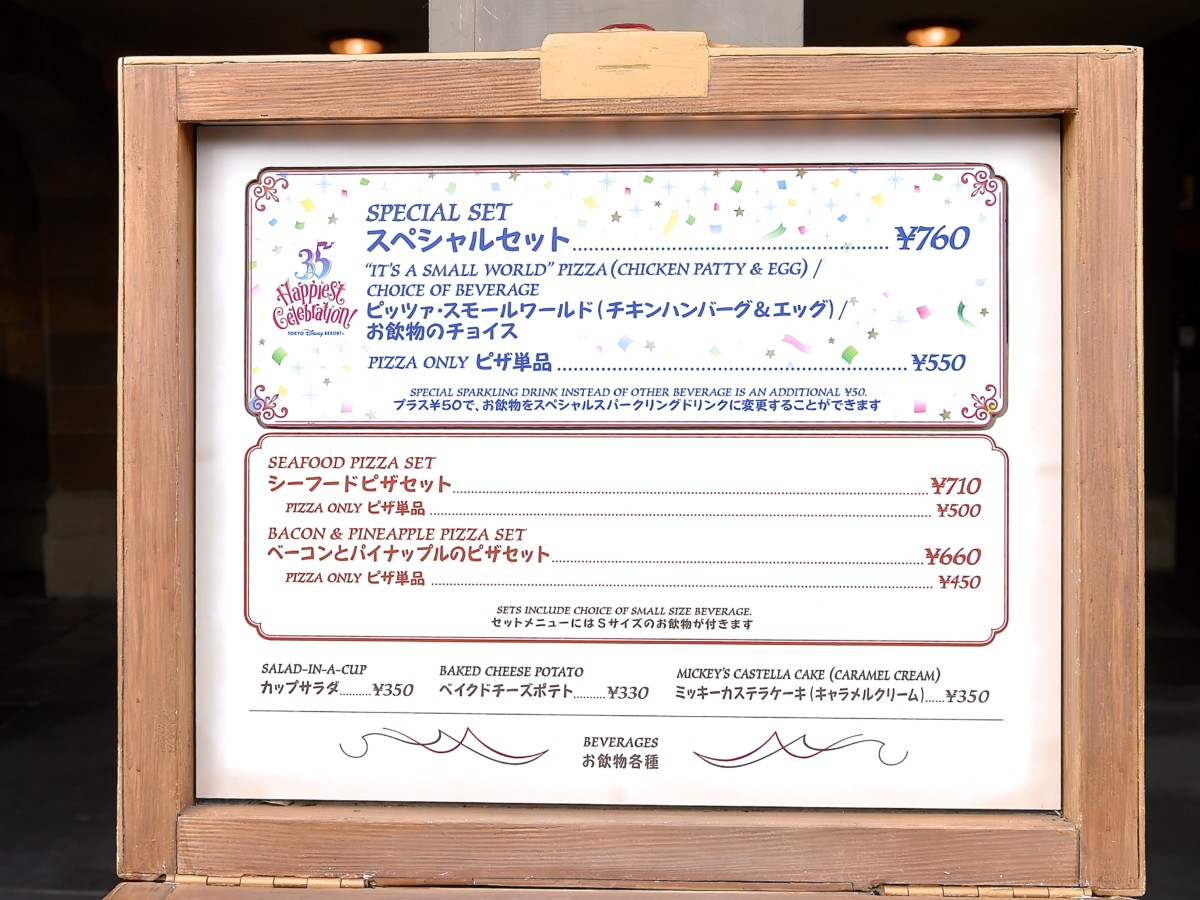 35
Happiest
Celebration!
TOKYO Disney RESORT®
SPECIAL SET
スペシャルセット................................................ ¥760
"IT'S A SMALL WORLD" PIZZA (CHICKEN PATTY & EGG) /
CHOICE OF BEVERAGE
ピッツァ・スモールワールド (チキンハンバーグ&エッグ) /
お飲物のチョイス
PIZZA ONLY ピザ単品 ................................................ ¥550
SPECIAL SPARKLING DRINK INSTEAD OF OTHER BEVERAGE IS AN ADDITIONAL ¥50.
プラス¥50で、お飲物をスペシャルスパークリングドリンクに変更することができます
SEAFOOD PIZZA SET
シーフードピザセット................................................ ¥710
PIZZA ONLY ピザ単品 ................................................ ¥500
BACON & PINEAPPLE PIZZA SET
ベーコンとパイナップルのピザセット................................................ ¥660
PIZZA ONLY ピザ単品 ................................................ ¥450
SETS INCLUDE CHOICE OF SMALL SIZE BEVERAGE.
セットメニューにはSサイズのお飲物が付きます
SALAD-IN-A-CUP
カップサラダ..........¥350
BAKED CHEESE POTATO
ベイクドチーズポテト..........¥330
MICKEY'S CASTELLA CAKE (CARAMEL CREAM)
ミッキーカステラケーキ (キャラメルクリーム)......¥350
BEVERAGES
お飲物各種